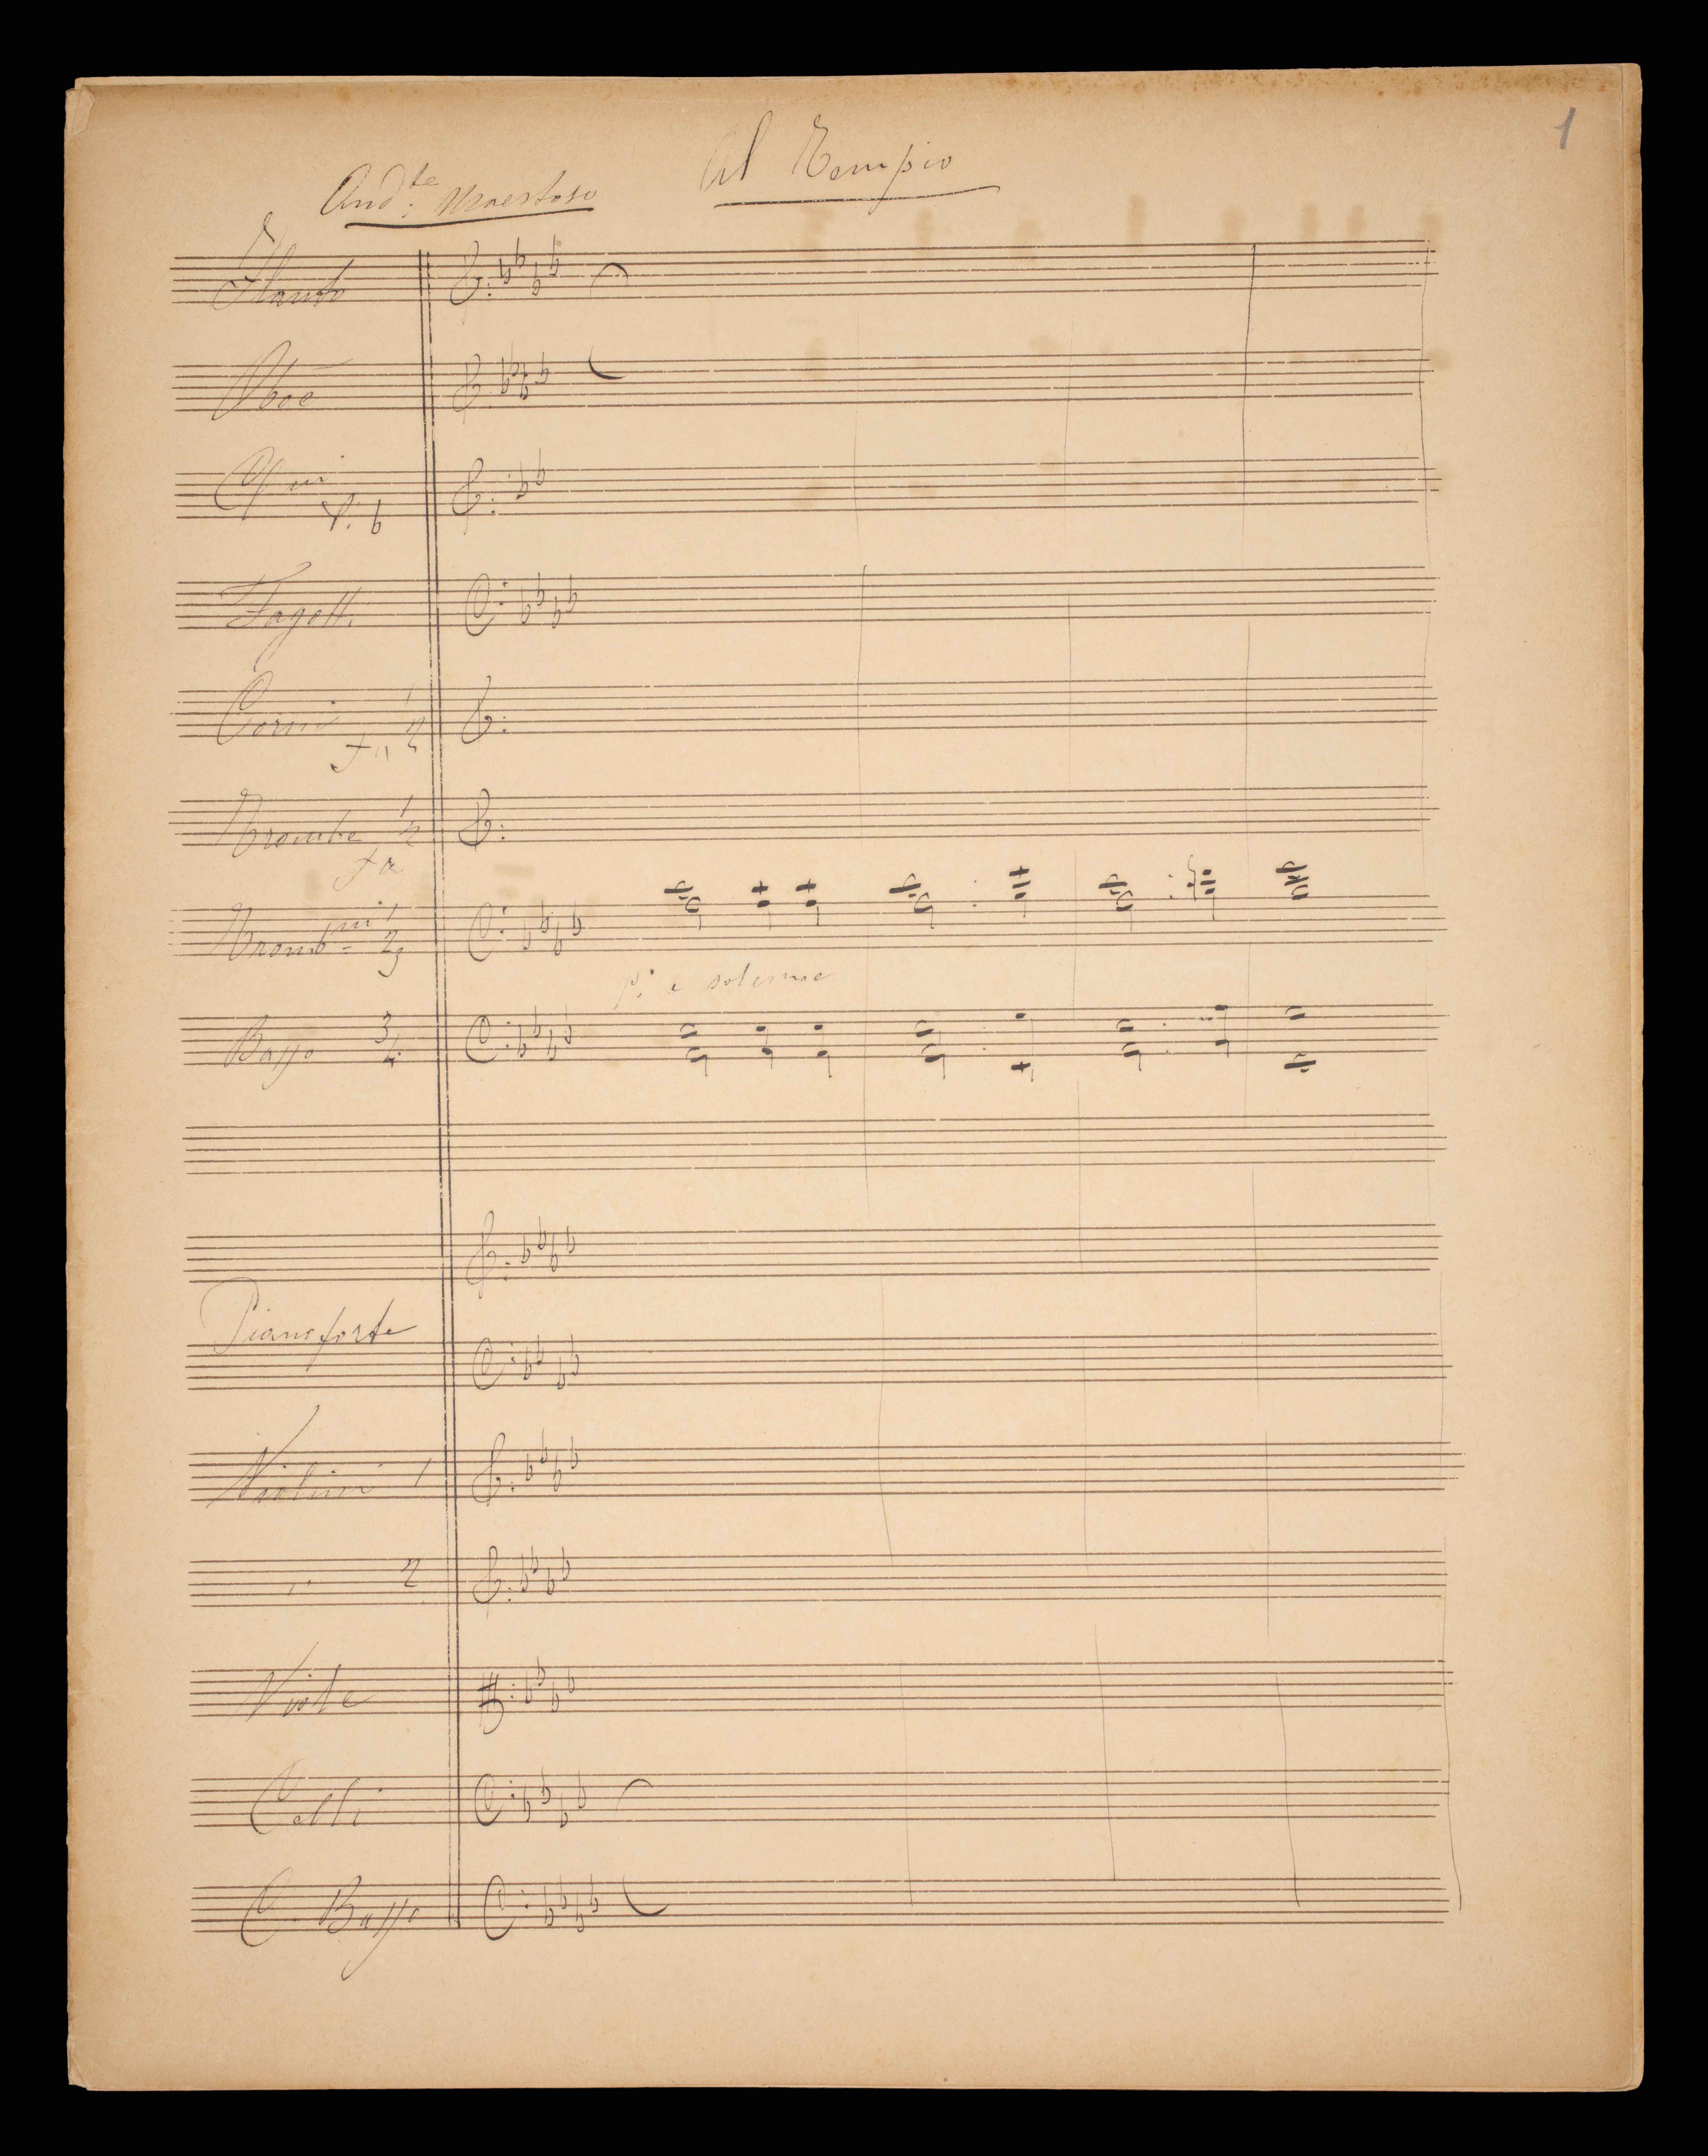 1
Al Tempio
And.te Maestoso
Flauto
Oboe
Cl.ni
Si b
Fagotti
Corni 1 2
Fa
Trombe 1 2
Fa
Tromb.ni 1 2 3
p. e solenne
Basso 3 4
Pianoforte
Violini 1
" 2
Viole
Celli
C. Basso